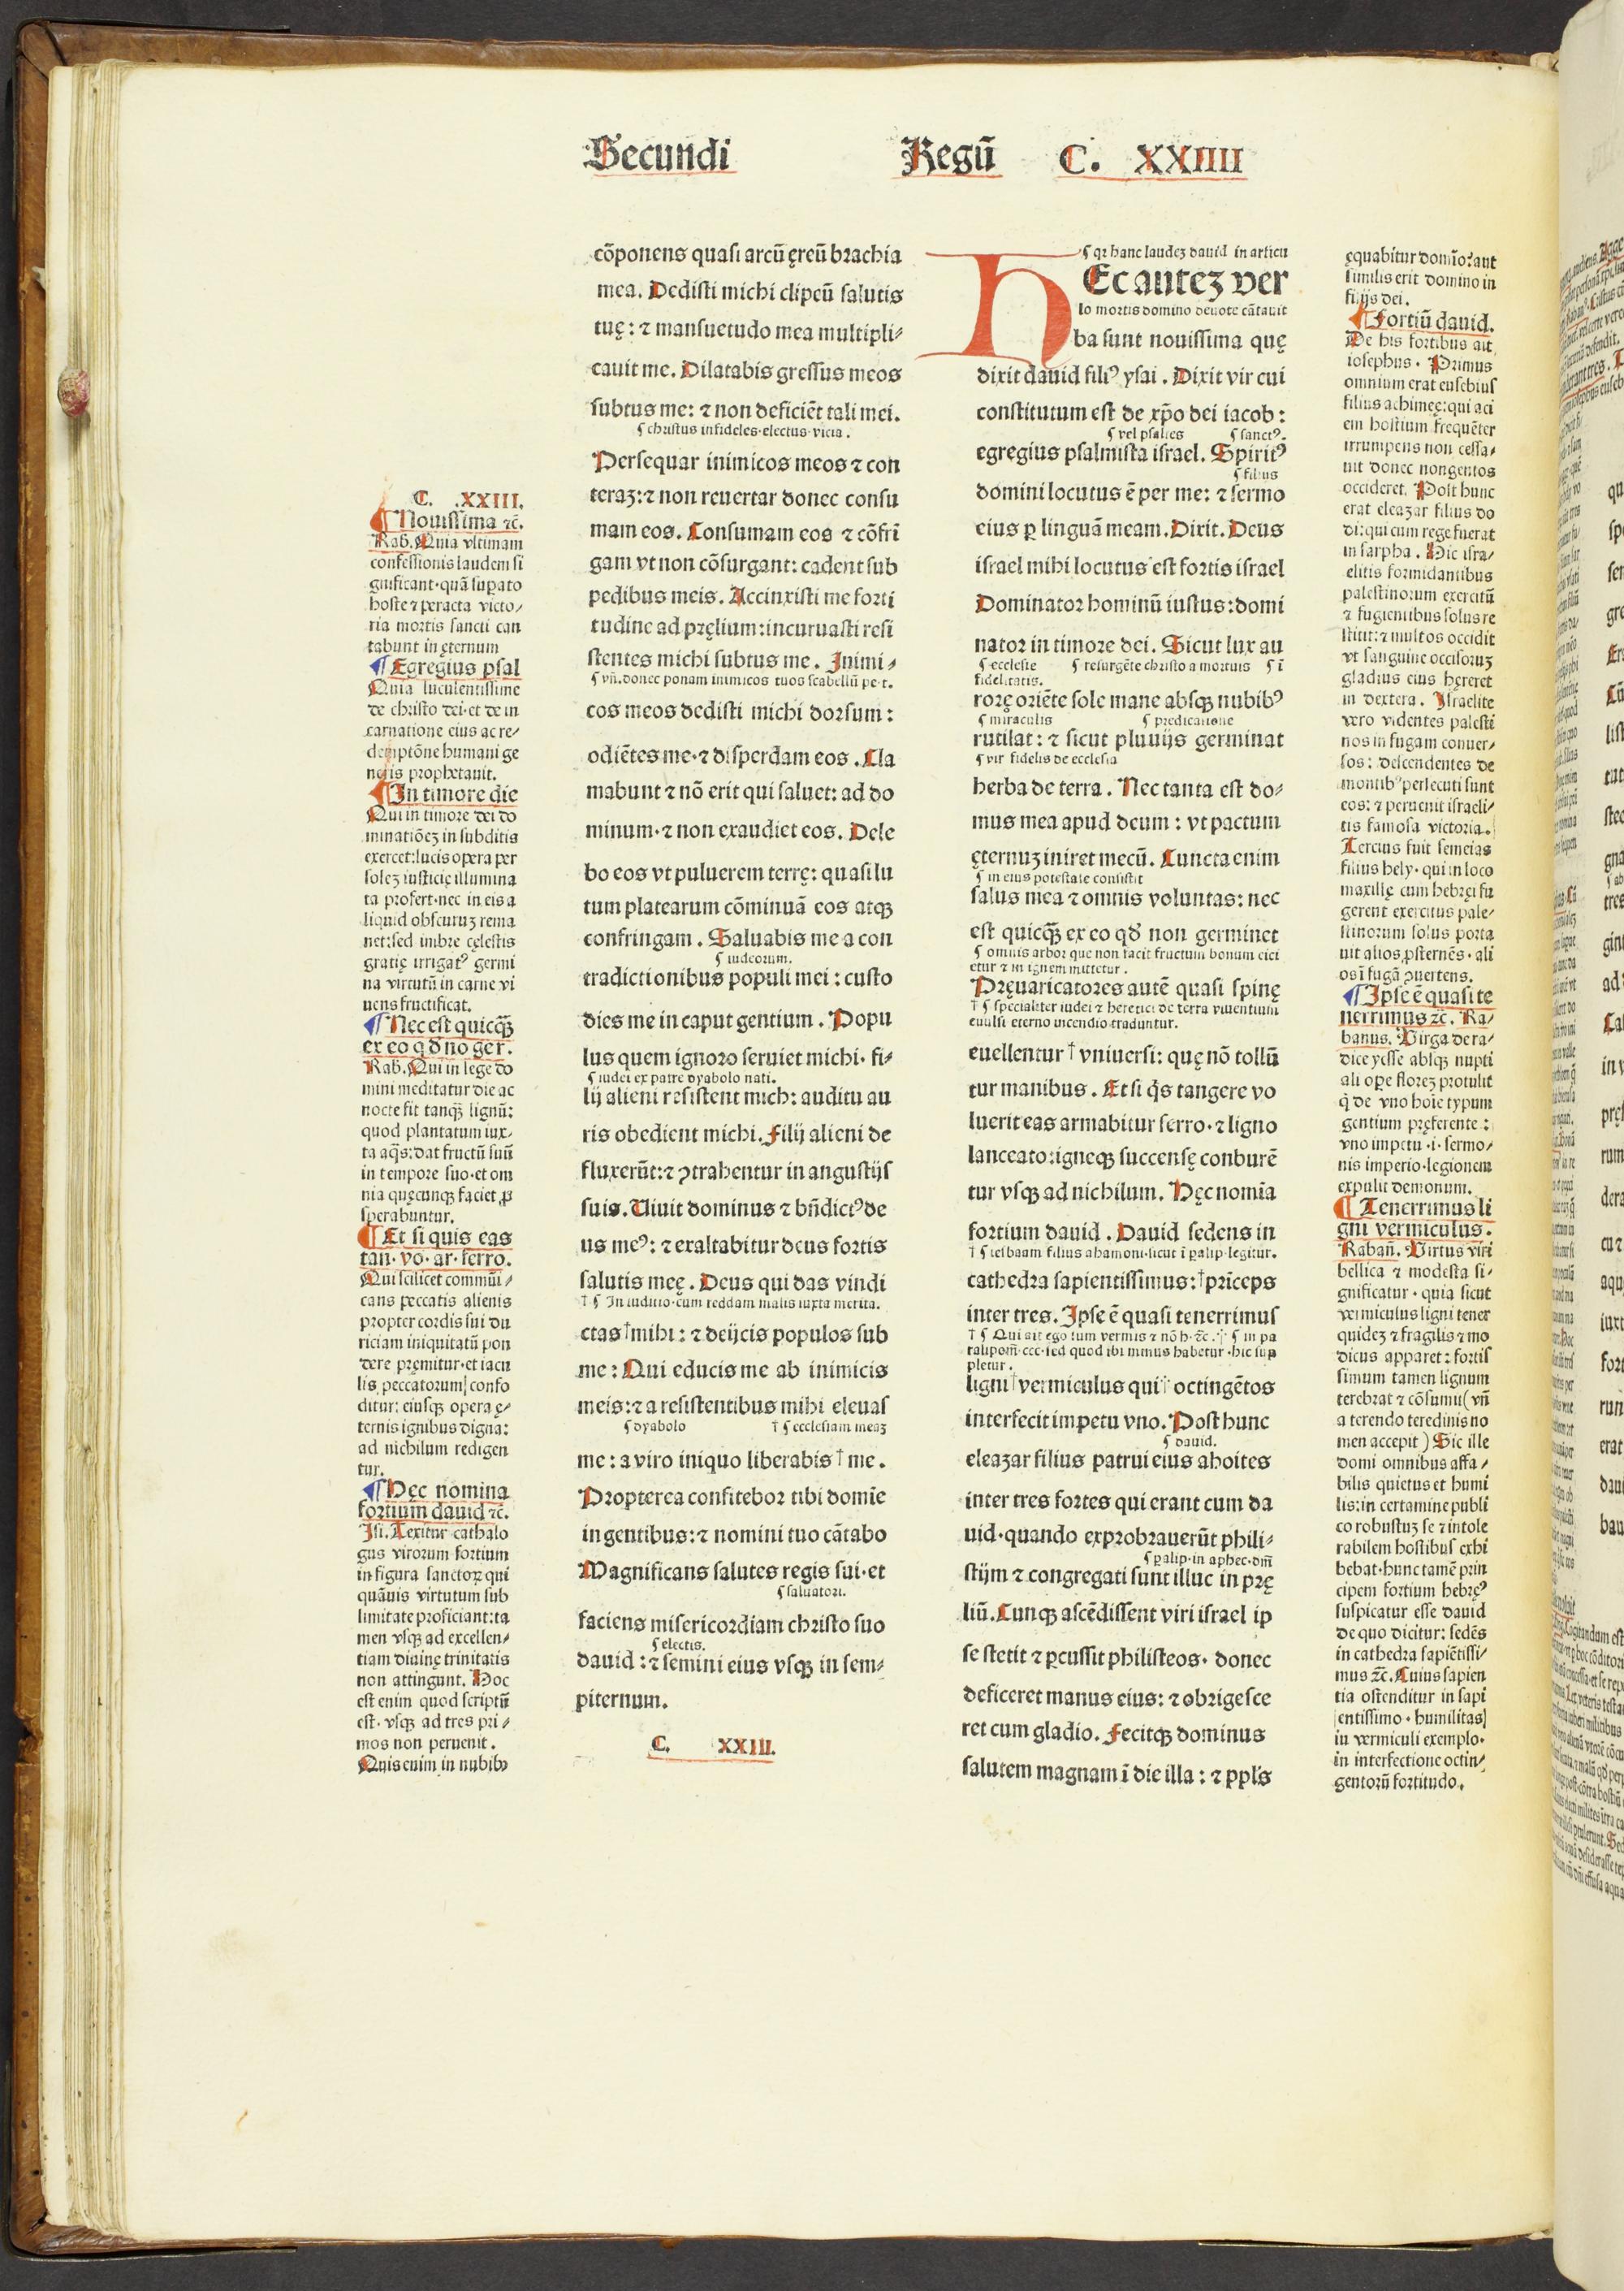 Secundi Regū C. XXIIII
C. XXIII.
¶ Nouissima ⁊c̄.
Rab. Quia vltimam
confessionis laudem si
gnificant· quā sup̱ato
hoste ⁊ peracta victo⸗
ria mortis sancti can
tabunt in ęternum
¶ Egregius psal
Quia luculentissime
de christo dei· et de in
carnatione eius ac re⸗
demptōne humani ge
neris prophetauit.
¶ In timore die
Qui in timore dei do
minatiōeʒ in subditis
exercet: lucis opera per
soleʒ iusticię illumina
ta profert· nec in eis a
liquid obscuruʒ rema
net: sed imbre cęlestis
gratię irrigatꝰ germi
na virtutū in carne vi
uens fructificat.
¶ Nec est quicq̄ꝫ
ex eo qd̄ nō ger.
Rab. Qui in lege do
mini meditatur die ac
nocte fit tanq̄ꝫ lignū:
quod plantatum iux⸗
ta aq̄s: dat fructū suū
in tempore suo· et om
nia quęcunqꝫ faciet ꝓ
sperabuntur.
¶ Et si quis eas
tan· vo· ar· ferro.
Qui scilicet commūi⸗
cans peccatis alienis
propter cordis sui du
riciam iniquitatū pon
dere pręmitur· et iacu
lis peccatorum confo
ditur: eiusqꝫ opera ę⸗
ternis ignibus digna:
ad nichilum redigen
tur.
¶ Hęc nomina
fortium dauid ⁊c̄.
Isi. Texitur cathalo
gus virorum fortium
in figura sanctoꝝ qui
quāuis virtutum sub
limitate proficiant: ta
men vsqꝫ ad excellen⸗
tiam diuinę trinitatis
non attingunt. Hoc
est enim quod scriptū
est· vsqꝫ ad tres pri⸗
mos non peruenit.
Quis enim in nubibꝰ
cōponens quasi arcū ęreū brachia
mea. Dedisti michi clipeū salutis
tuę: ⁊ mansuetudo mea multipli⸗
cauit me. Dilatabis gressus meos
subtus me: ⁊ non deficiēt tali mei.
¶ christus infideles· electus· vicia.
Persequar inimicos meos ⁊ con
teraʒ: ⁊ non reuertar donec consu
mam eos. Consumam eos ⁊ cōfrī
gam vt non cōsurgant: cadent sub
pedibus meis. Accinxisti me forti
tudine ad pręlium: incuruasti resi
stentes michi subtus me. Inimi⸗
¶ vn̄. donec ponam inimicos tuos scabellū pe· t.
cos meos dedisti michi dorsum:
odiētes me· ⁊ disperdam eos. Cla
mabunt ⁊ nō erit qui saluet: ad do
minum· ⁊ non exaudiet eos. Dele
bo eos vt puluerem terrę: quasi lu
tum platearum cōminuā eos atqꝫ
confringam. Saluabis me a con
¶ iudeorum.
tradictionibus populi mei: custo
dies me in caput gentium. Popu
lus quem ignoro seruiet michi· fi⸗
¶ iudei ex patre dyabolo nati.
lij alieni resistent mich: auditu au
ris obedient michi. Filij alieni de
fluxerūt: ⁊ ꝯtrahentur in angustijs
suis. Uiuit dominus ⁊ bn̄dictꝰ de
us meꝰ: ⁊ exaltabitur deus fortis
salutis meę. Deus qui das vindi
† ¶ In iuditio· cum reddam malis iuxta merita.
ctas † mihi: ⁊ deijcis populos sub
me: Qui educis me ab inimicis
meis: ⁊ a resistentibus mihi eleuas
¶ dyabolo † ¶ ecclesiam meaʒ
me: a viro iniquo liberabis † me.
Propterea confitebor tibi domīe
in gentibus: ⁊ nomini tuo cātabo
Magnificans salutes regis sui· et
¶ saluatori.
faciens misericordiam christo suo
¶ electis.
dauid: ⁊ semini eius vsqꝫ in sem⸗
piternum.
C. XXIII.
¶ qꝛ hanc laudeʒ dauid in articu
HEc auteʒ ver
lo mortis domino deuote cātauit
ba sunt nouissima quę
dixit dauid filiꝰ ysai. Dixit vir cui
constitutum est de xp̄o dei iacob:
¶ vel psalles ¶ sanctꝰ.
egregius psalmista israel. Spiritꝰ
¶ filius
domini locutus ē per me: ⁊ sermo
eius ꝑ linguā meam. Dixit. Deus
israel mihi locutus est fortis israel
Dominator hominū iustus: domi
nator in timore dei. Sicut lux au
¶ ecclesie ¶ resurgēte christo a mortuis ¶ ī
fidelitatis.
rorę oriēte sole mane absqꝫ nubibꝰ
¶ miraculis ¶ predicatione
rutilat: ⁊ sicut pluuijs germinat
¶ vir fidelis de ecclesia
herba de terra. Nec tanta est do⸗
mus mea apud deum: vt pactum
ęternuʒ iniret mecū. Cuncta enim
¶ in eius potestate consistit
salus mea ⁊ omnis voluntas: nec
est quicq̄ꝫ ex eo qd̄ non germinet
¶ omnis arbor que non facit fructum bonum eici
etur ⁊ in ignem mittetur.
Pręuaricatores autē quasi spinę
† ¶ specialiter iudei ⁊ heretici de terra viuentium
euulsi eterno incendio traduntur.
euellentur † vniuersi: quę nō tollū
tur manibus. Et si q̄s tangere vo
luerit eas armabitur ferro· ⁊ ligno
lanceato: igneqꝫ succensę conburē
tur vsqꝫ ad nichilum. Hęc nomīa
fortium dauid. Dauid sedens in
† ¶ iesbaam filius ahamoni· sicut ī ꝑalip· legitur.
cathedra sapientissimus: † prīceps
inter tres. Ipse ē quasi tenerrimus
† ¶ Qui ait ego sum vermis ⁊ nō h· ⁊c̄. † ¶ in pa
ralipom̄· ccc· sed quod ibi minus habetur· hic sup
pletur.
ligni † vermiculus qui † octingētos
interfecit impetu vno. Post hunc
¶ dauid.
eleazar filius patrui eius ahoites
inter tres fortes qui erant cum da
uid· quando exprobrauerūt phili⸗
¶ ꝑalip· in aphec· dm̄
stijm ⁊ congregati sunt illuc in prę
liū. Cunqꝫ ascēdissent viri israel ip
se stetit ⁊ ꝑcussit philisteos· donec
deficeret manus eius: ⁊ obrigesce
ret cum gladio. Fecitqꝫ dominus
salutem magnam ī die illa: ⁊ ppl's
ęquabitur domīo: aut
similis erit domino in
filijs dei.
¶ Fortiū dauid.
De his fortibus ait
iosephus. Primus
omnium erat eusebius
filius achimeę: qui aci
em hostium frequēter
irrumpens non cessa⸗
uit donec nongentos
occideret. Post hunc
erat eleazar filius do
di: qui cum rege fuerat
in sarpha. Hic isra⸗
elitis formidantibus
palestinorum exercitū
⁊ fugientibus solus re
stitit: ⁊ multos occidit
vt sanguine occisoruʒ
gladius eius hęreret
in dextera. Israelite
vero videntes palesti
nos in fugam conuer⸗
sos: descendentes de
montibꝰ persecuti sunt
eos: ⁊ peruenit israeli⸗
tis famosa victoria.
Tercius fuit semeias
filius hely· qui in loco
maxillę cum hebręi fu
gerent exercitus pale⸗
stinorum solus porta
uit alios ꝓsternēs· ali
os ī fugā ꝯuertens.
¶ Ipse ē quasi te
nerrimus ⁊c̄. Ra⸗
banus. Uirga de ra⸗
dice yesse absqꝫ nupti
ali oꝑe floreʒ protulit
q̄ de vno hoīe typum
gentium pręferente:
vno impetu· i· sermo⸗
nis imperio· legionem
expulit demonum.
¶ Tenerrimus li
gni vermiculus.
Raban̄. Uirtus viri
bellica ⁊ modesta si⸗
gnificatur· quia sicut
vermiculus ligni tener
quideʒ ⁊ fragilis ⁊ mo
dicus apparet: fortis
simum tamen lignum
terebrat ⁊ cōsumit (vn̄
a terendo teredinis no
men accepit) Sic ille
domi omnibus affa⸗
bilis quietus et humi
lis: in certamine publi
co robustuʒ se ⁊ intole
rabilem hostibus exhi
bebat· hunc tamē prin
cipem fortium hebręꝰ
suspicatur esse dauid
de quo dicitur: sedēs
in cathedra sapiētissi⸗
mus ⁊c̄. Cuius sapien
tia ostenditur in sapi
entissimo· humilitas
in vermiculi exemplo·
in interfectione octin⸗
gentorū fortitudo.